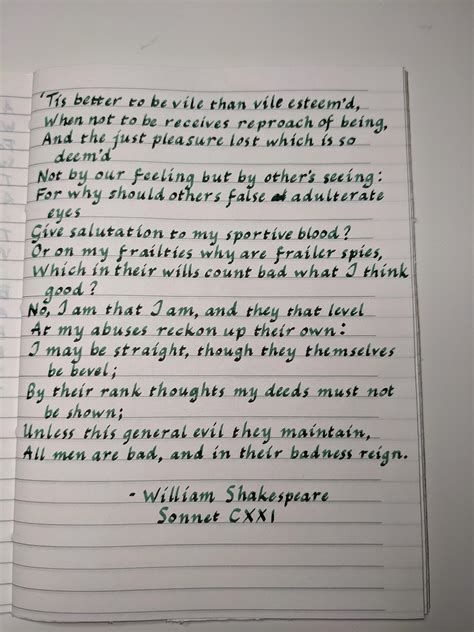 'Tis better to be vile than vile esteem'd,
When not to be receives reproach of being,
And the just pleasure lost which is so
deem'd
Not by our feeling but by other's seeing:
For why should others false adulterate
eyes
Give salutation to my sportive blood?
Or on my frailties why are frailer spies,
Which in their wills count bad what I think
good?
No, I am that I am, and they that level
At my abuses reckon up their own:
I may be straight, though they themselves
be bevel;
By their rank thoughts my deeds must not
be shown;
Unless this general evil they maintain,
All men are bad, and in their badness reign.
- William Shakespeare
Sonnet CXXI